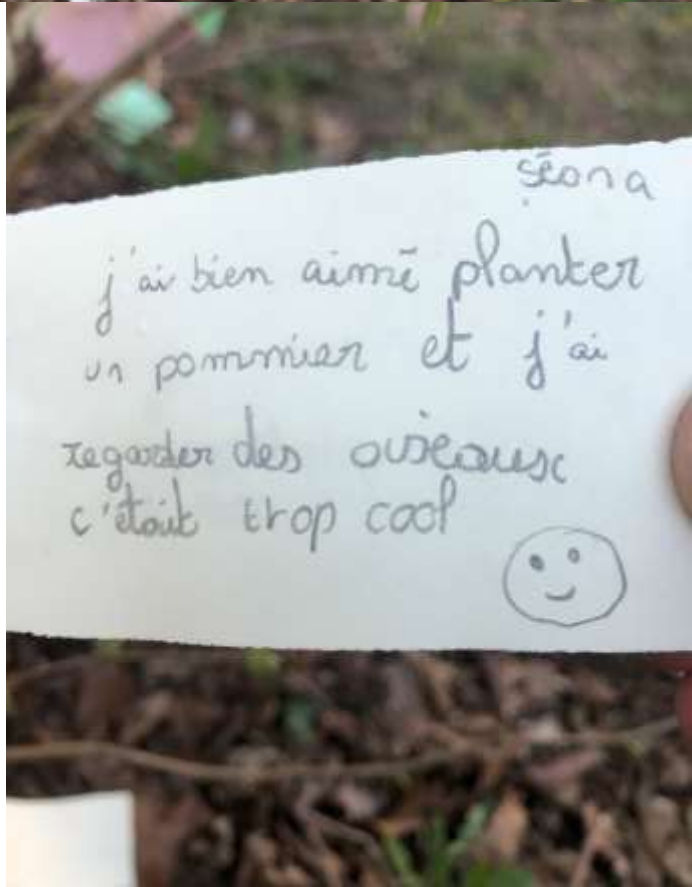 séona
j'ai bien aimé planter
un pommier et j'ai
regarder des oiseaux
c'était trop cool